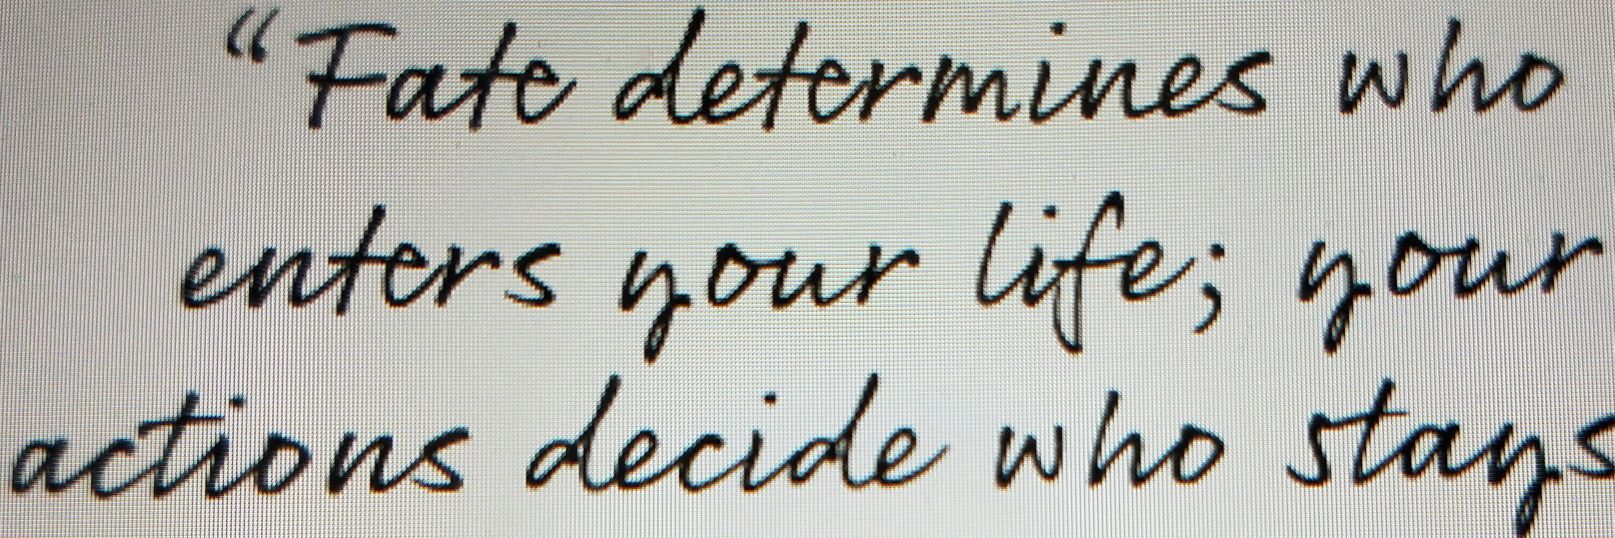 “Fate determines who
enters your life; your
actions decide who stays